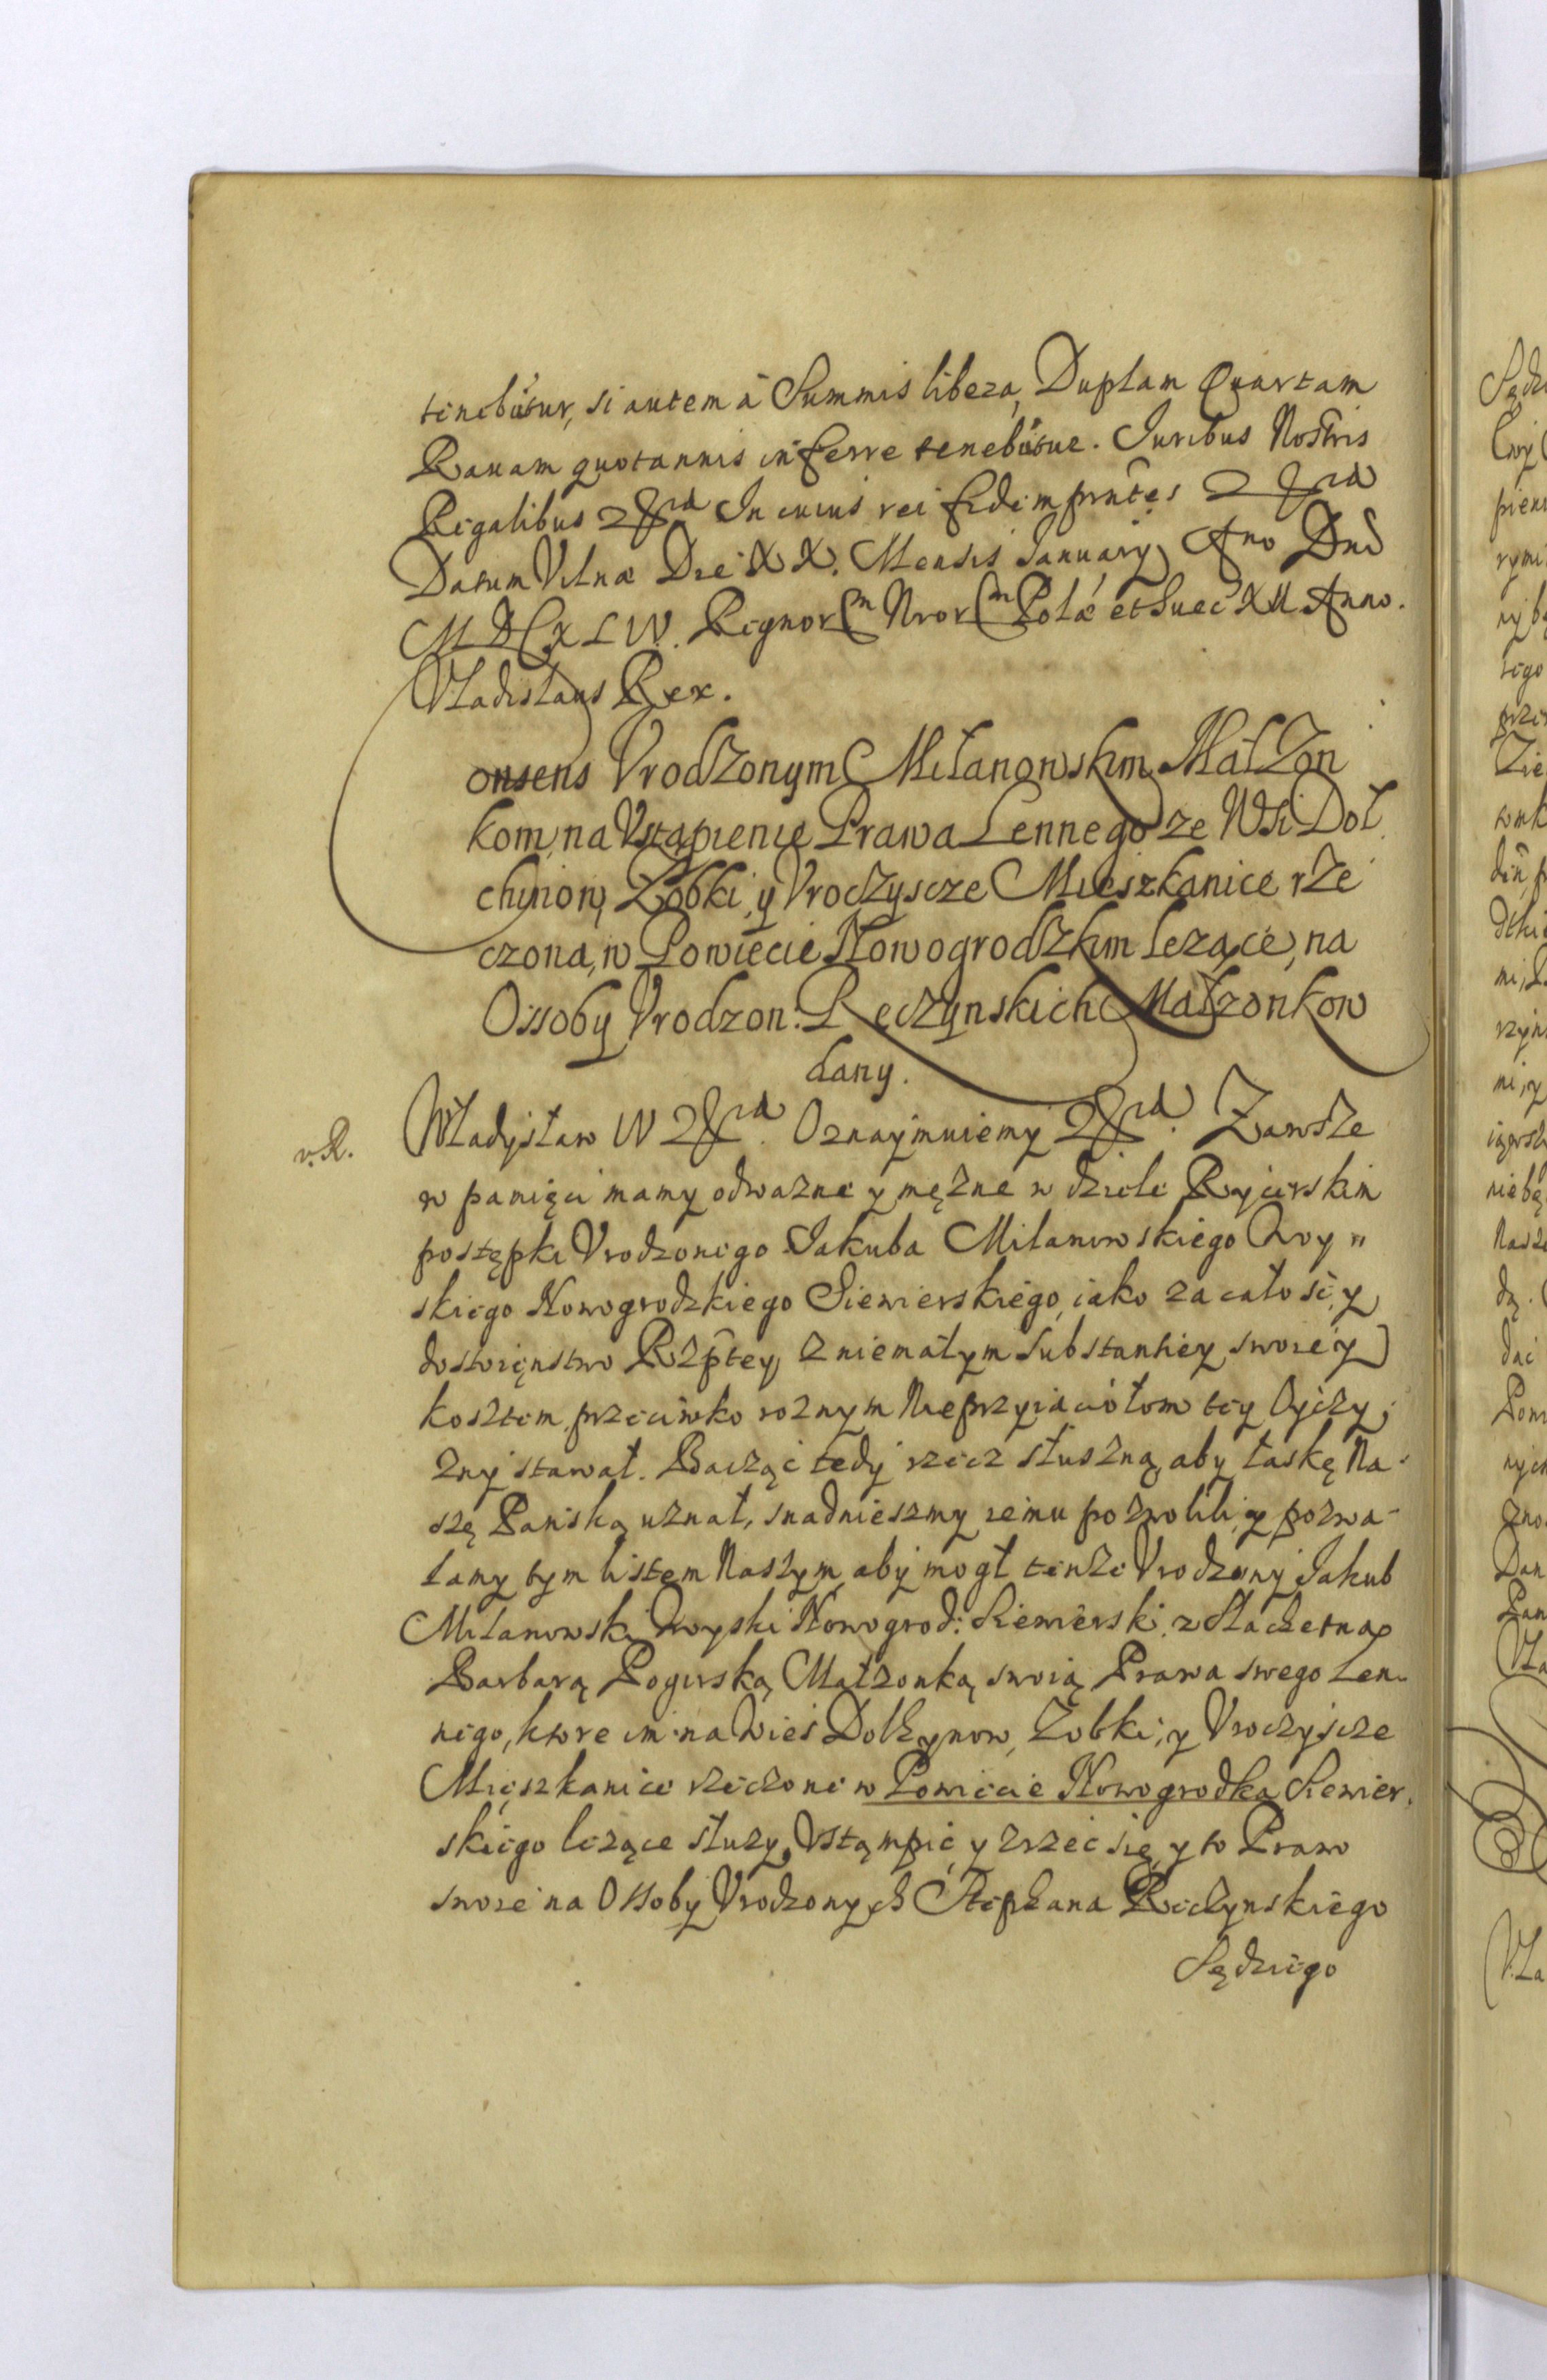 tenebitur, si autem à Summis libera, Duplam Quartam
Ravam quotannis inferre tenebitur. Iuribus Nostris
Regalibus &c. In cuius rei fidem prntes &c.
Datum Vilnæ Die XX. Mensis January Ano Dni
MDCXLIV. Regnor. Nror. Polæ et Suec XII Anno.
Vladislaus Rex.
Consens Vrodzonym Milanowskim Małżon
kom, na Vstąpienie Prawa Lennego ze Wsi Doł
chynow, Zobki, y Vroczyscze Mieszkanice rze
czona, w Powiecie Nowogrodzkim lezące, na
Ossoby Vrodzon. Reczynskich Małzonkow
dany.
v. R.
Władysław IV &c. Oznaymuiemy &c. Zawsze
w pamięci mamy odwazne y męzne w dziele Rycerskim
postępki Vrodzonego Jakuba Milanowskiego Woy"
skiego Nowogrodzkiego Siewierskiego, iako za całość, y
dostoięnstwo Rzptey, z niemałym substantiey swoiey
kosztem, przeciwko roznym Nieprzyiaciołom tey Oyczy,
zny stawał. Bacząc tedy rzecz słuszną, aby łaskę Na-
szę Panską uznał, snadnieszmy iemu pozwolili, y pozwa-
lamy tym listem Naszym, aby mogł tenże Vrodzony Jakub
Milanowski Woyski Nowogrod: Siewierski, z Slachetną
Barbarą Pogirską Małzonką swoią Prawa swego Len-
nego, ktore im na Wieś Dolhynow, Zobki, y Vroczyscze
Mięszkanice rzeczone w Powiecie Nowogrodka Siewier,
skiego lezące słuzy, Vstąmpić, y zrzec się, y to Prawo
swoie na Ossoby Vrodzonych Stephana Reczynskiego
Sędziego